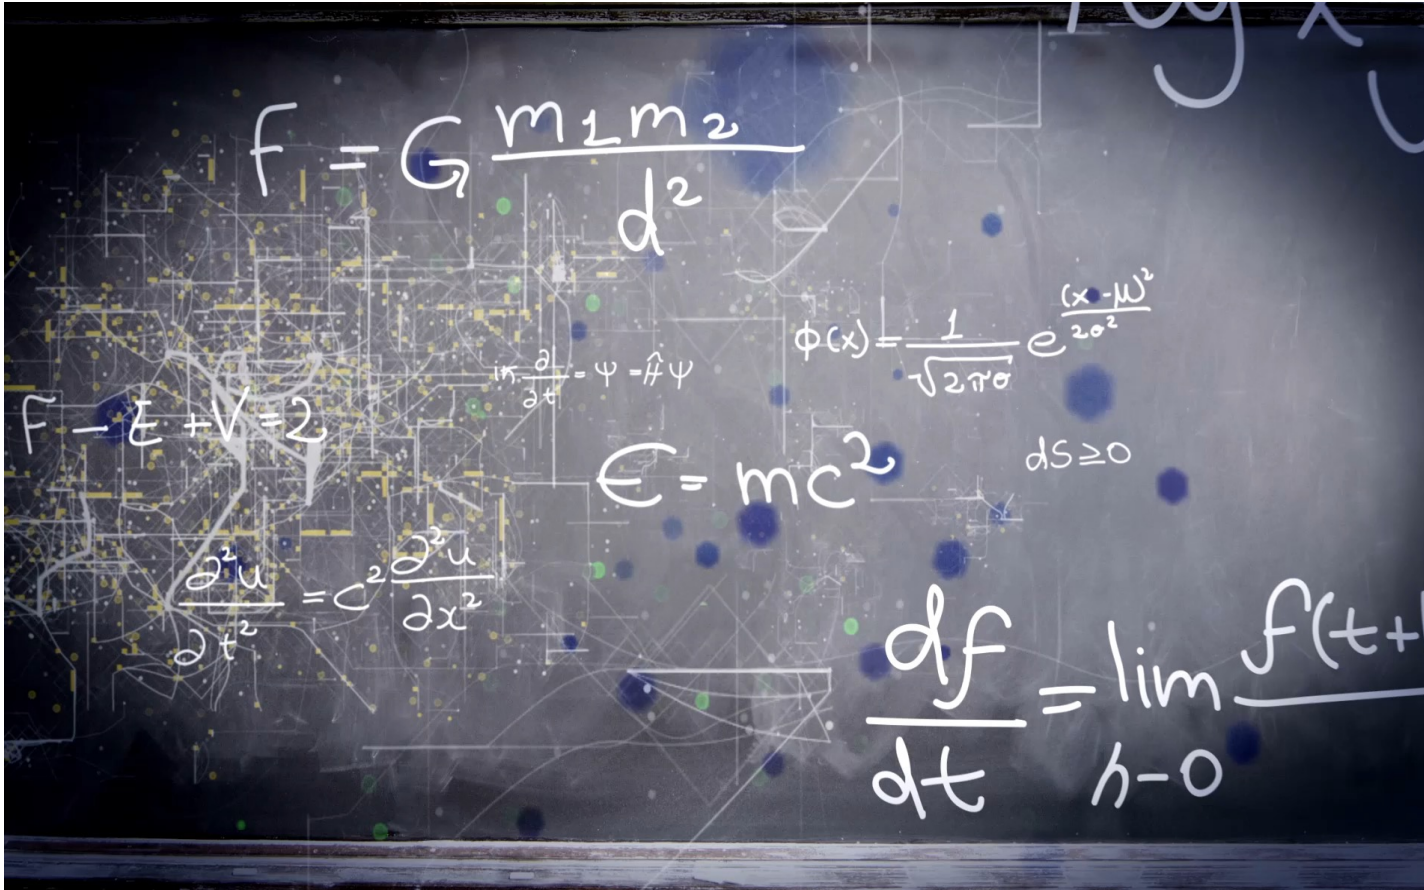 log x
F = G m1 m2 / d²
ϕ(x) = 1 / √2πσ e (x-μ)² / 2σ²
iℏ ∂ / ∂t = Ψ = Ĥ Ψ
F - E + V = 2
E = mc²
dS ≥ 0
∂²u / ∂t² = c² ∂²u / ∂x²
df / dt = lim h-0 f(t+